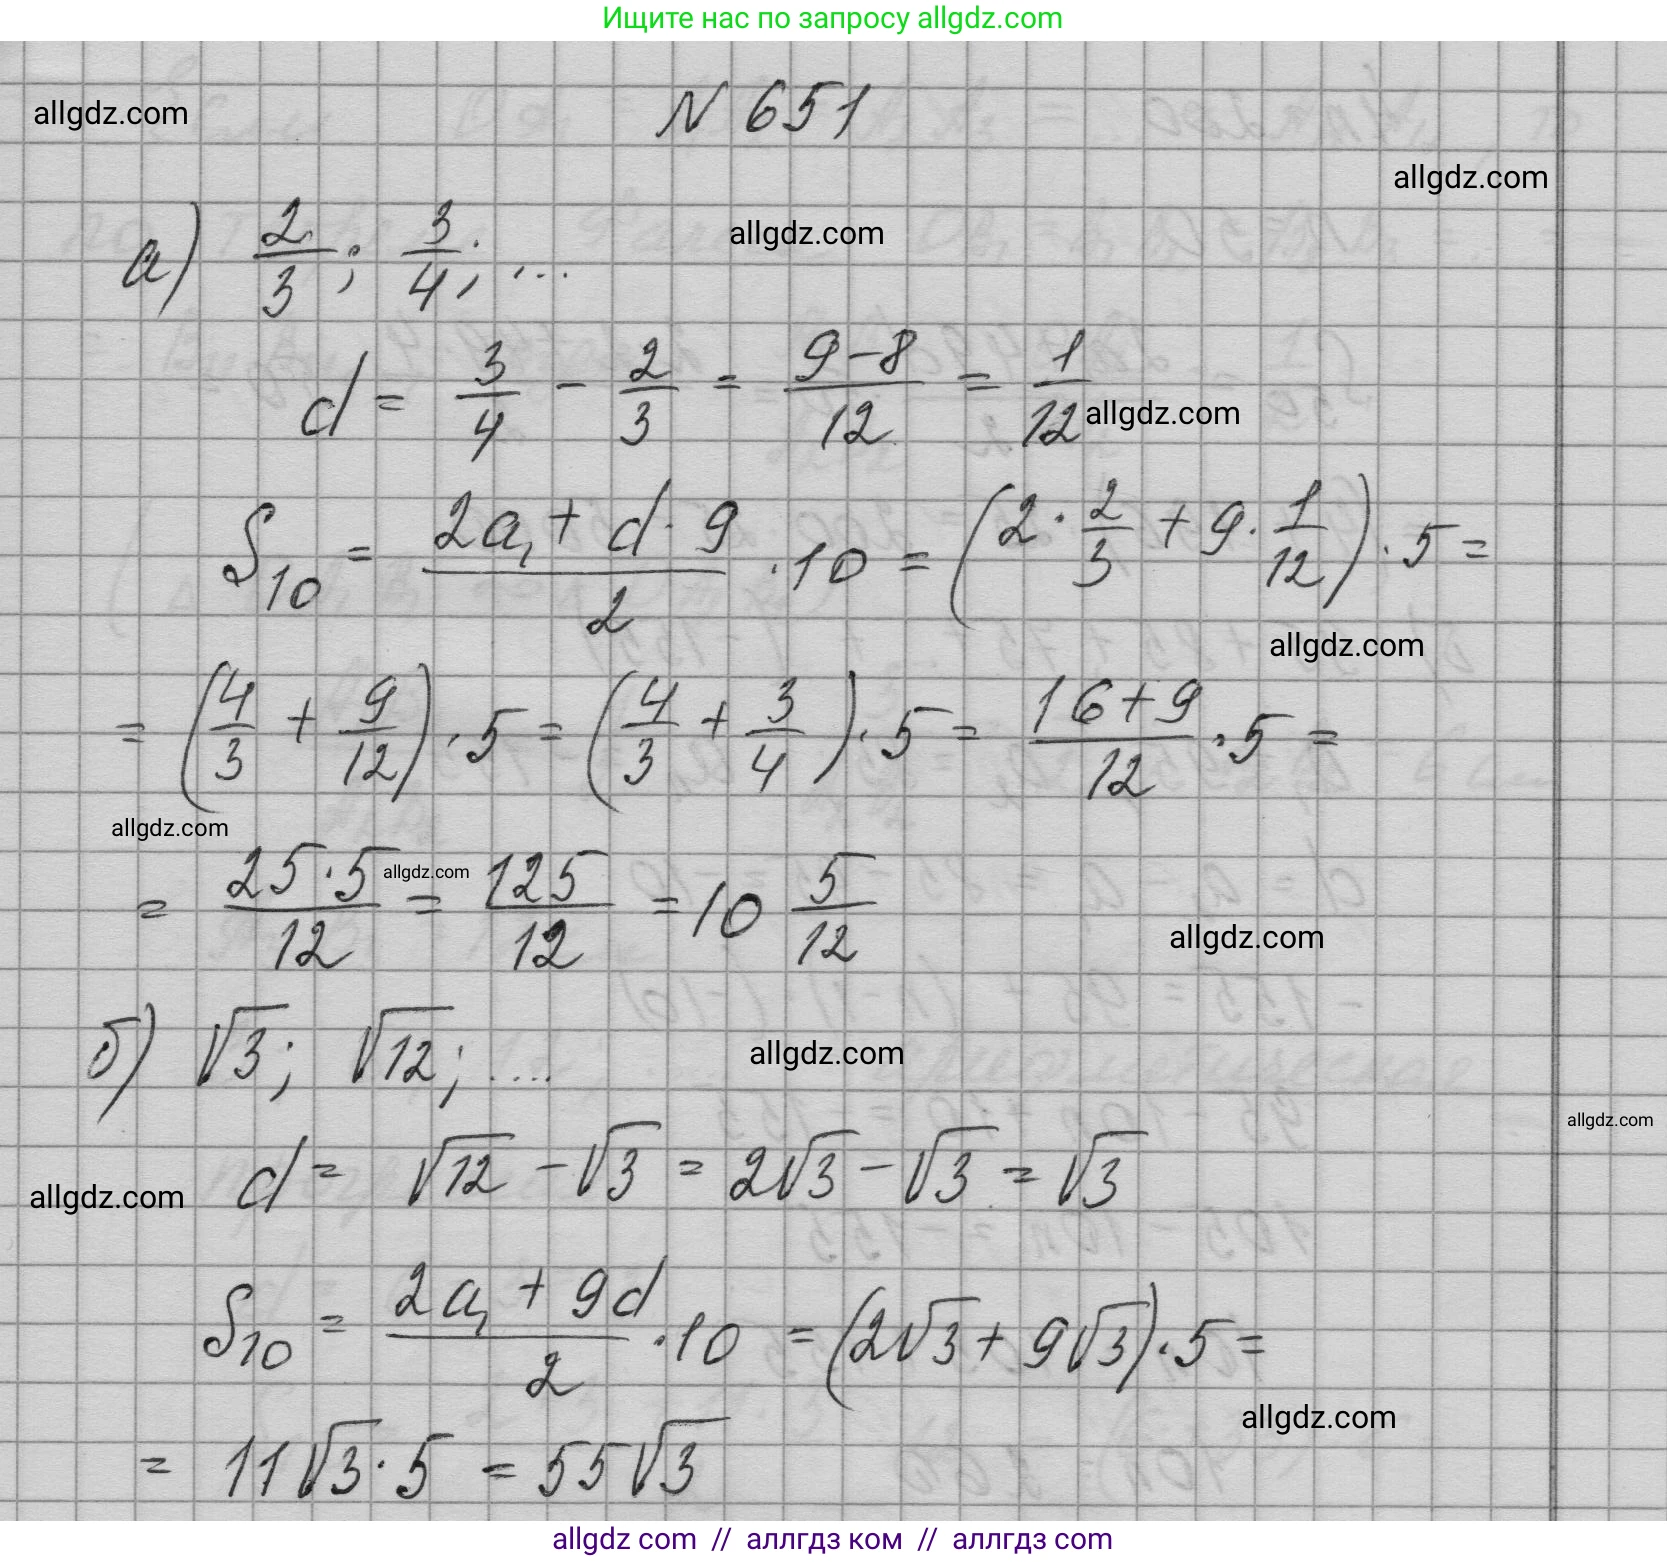 Ищите нас по запросу allgdz.com
allgdz.com
N 651
allgdz.com
allgdz.com
а) 2/3; 3/4; ...
d = 3/4 - 2/3 = (9-8)/12 = 1/12
allgdz.com
S₁₀ = (2a₁ + d·9)/2 ·10 = (2·2/3 + 9·1/12)·5 =
allgdz.com
= (4/3 + 9/12)·5 = (4/3 + 3/4)·5 = (16+9)/12 ·5 =
allgdz.com
= (25·5)/12 = 125/12 = 10 5/12
allgdz.com
allgdz.com
б) √3; √12; ....
allgdz.com
allgdz.com
d = √12 - √3 = 2√3 - √3 = √3
allgdz.com
S₁₀ = (2a₁ + 9d)/2 ·10 = (2√3 + 9√3)·5 =
allgdz.com
= 11√3·5 = 55√3
allgdz com // аллгдз ком // аллгдз com